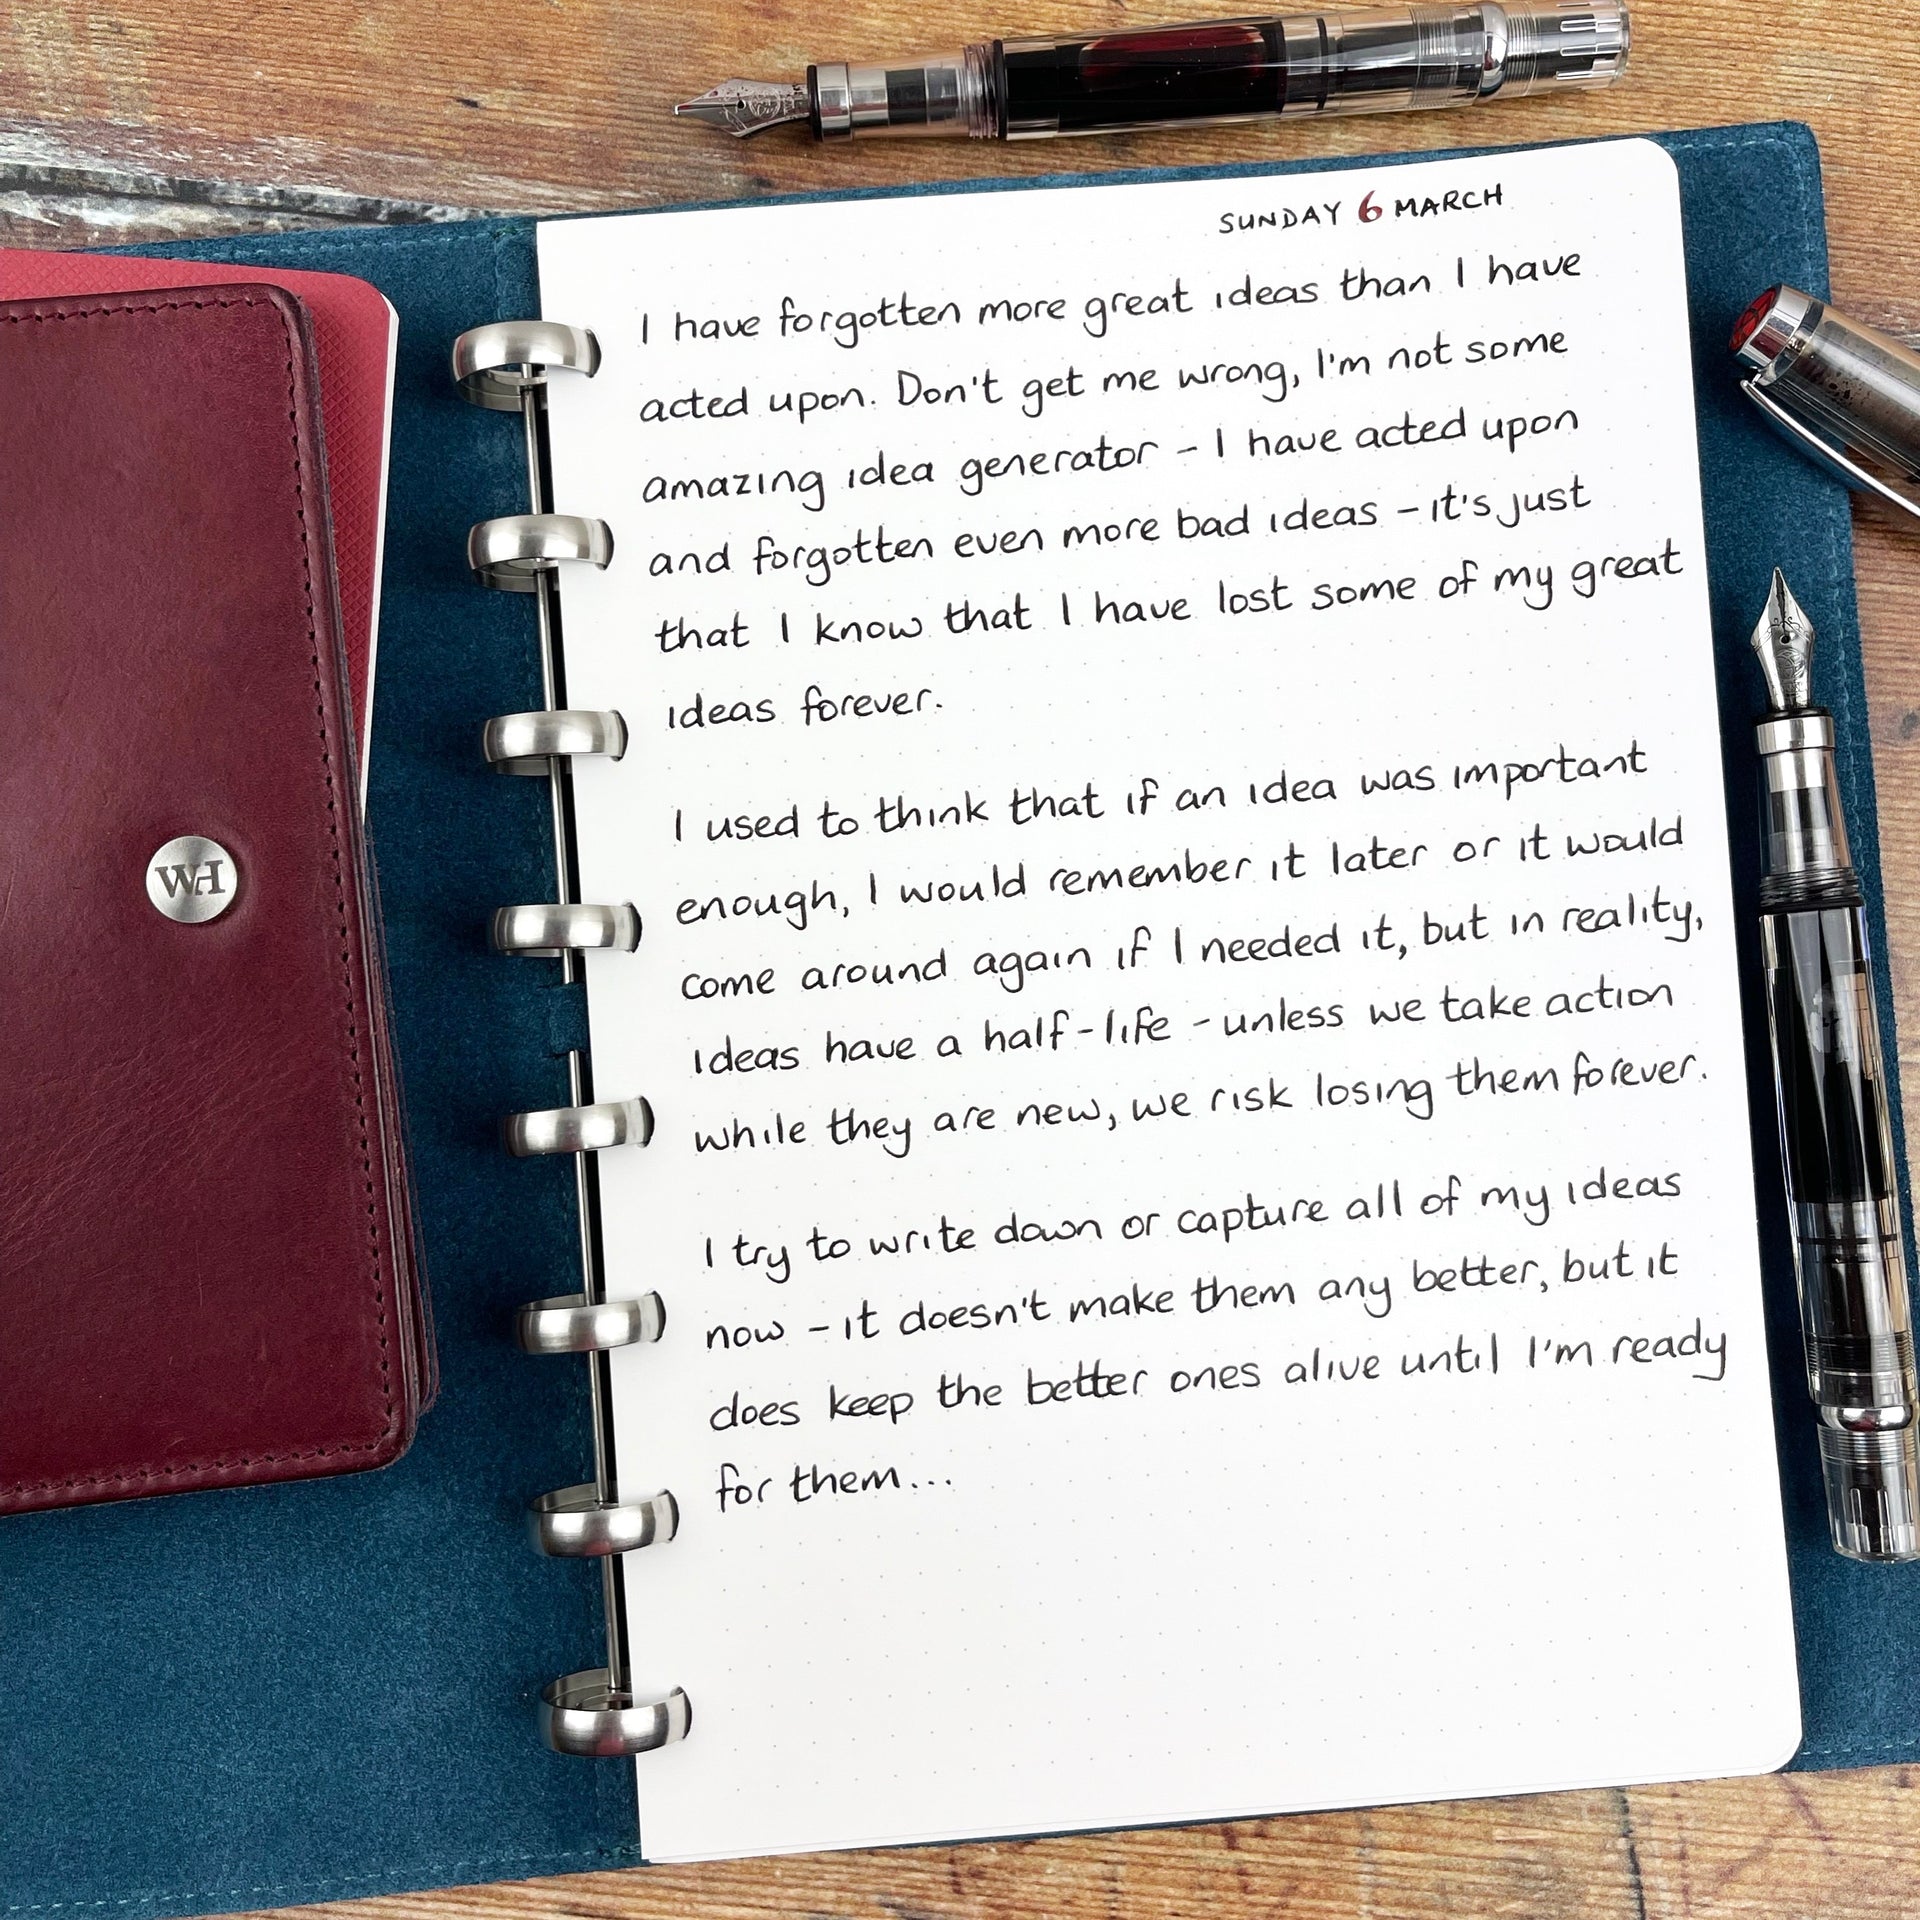 SUNDAY 6 MARCH
I have forgotten more great ideas than I have
acted upon. Don't get me wrong, I'm not some
amazing idea generator - I have acted upon
and forgotten even more bad ideas - it's just
that I know that I have lost some of my great
ideas forever.
I used to think that if an idea was important
enough, I would remember it later or it would
come around again if I needed it, but in reality,
ideas have a half-life - unless we take action
while they are new, we risk losing them forever.
I try to write down or capture all of my ideas
now - it doesn't make them any better, but it
does keep the better ones alive until I'm ready
for them...
WH